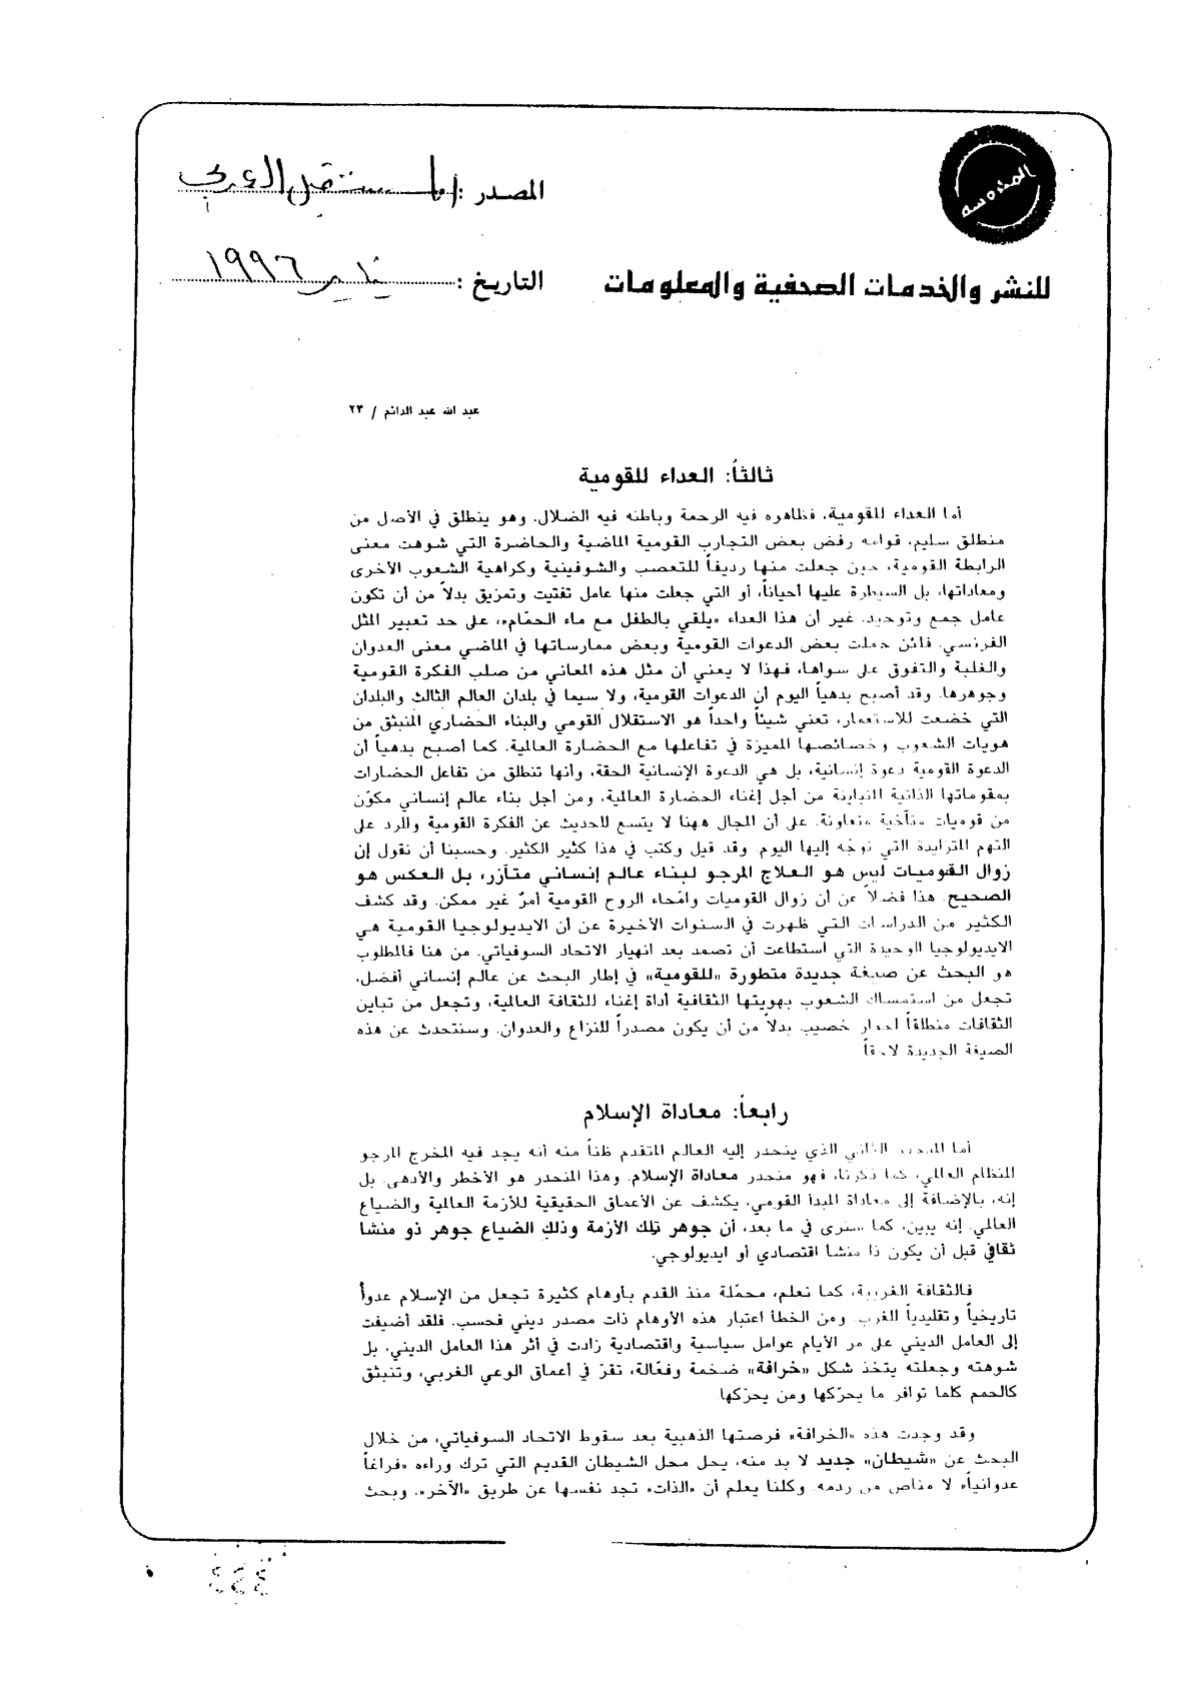 المصدر : المستقبل العربي
للنشر والخدمات الصحفية والمعلومات
التاريخ : يناير ١٩٩٦
عبد الله عبد الدائم / ٢٣
ثالثاً: العداء للقومية
أما العداء للقومية، فظاهره فيه الرحمة وباطنه فيه الضلال. وهو ينطلق في الأصل من
منطلق سليم، قوامه رفض بعض التجارب القومية الماضية والحاضرة التي شوهت معنى
الرابطة القومية، حين جعلت منها رديفاً للتعصب والشوفينية وكراهية الشعوب الأخرى
ومعاداتها، بل السيطرة عليها أحياناً، أو التي جعلت منها عامل تفتيت وتمزيق بدلاً من أن تكون
عامل جمع وتوحيد. غير أن هذا العداء «يلقي بالطفل مع ماء الحمّام»، على حد تعبير المثل
الفرنسي. فلئن حملت بعض الدعوات القومية وبعض ممارساتها في الماضي معنى العدوان
والغلبة والتفوق على سواها، فهذا لا يعني أن مثل هذه المعاني من صلب الفكرة القومية
وجوهرها. وقد أصبح بدهياً اليوم أن الدعوات القومية، ولا سيما في بلدان العالم الثالث والبلدان
التي خضعت للاستعمار، تعني شيئاً واحداً هو الاستقلال القومي والبناء الحضاري المنبثق من
هويات الشعوب وخصائصها المميزة في تفاعلها مع الحضارة العالمية. كما أصبح بدهياً أن
الدعوة القومية دعوة إنسانية، بل هي الدعوة الإنسانية الحقة، وأنها تنطلق من تفاعل الحضارات
بمقوماتها الذاتية المتباينة من أجل إغناء الحضارة العالمية، ومن أجل بناء عالم إنساني مكوّن
من قوميات متآخية متعاونة. على أن المجال ههنا لا يتسع للحديث عن الفكرة القومية والرد على
التهم المتزايدة التي توجّه إليها اليوم. وقد قيل وكتب في هذا كثير الكثير. وحسبنا أن نقول إن
زوال القوميات ليس هو العلاج المرجو لبناء عالم إنساني متآزر، بل العكس هو
الصحيح. هذا فضلاً عن أن زوال القوميات وامّحاء الروح القومية أمرٌ غير ممكن. وقد كشف
الكثير من الدراسات التي ظهرت في السنوات الأخيرة عن أن الايديولوجيا القومية هي
الايديولوجيا الوحيدة التي استطاعت أن تصمد بعد انهيار الاتحاد السوفياتي. من هنا فالمطلوب
هو البحث عن صيغة جديدة متطورة «للقومية» في إطار البحث عن عالم إنساني أفضل،
تجعل من استمساك الشعوب بهويتها الثقافية أداة إغناء للثقافة العالمية، وتجعل من تباين
الثقافات منطلقاً لحوار خصيب بدلاً من أن يكون مصدراً للنزاع والعدوان. وسنتحدث عن هذه
الصيغة الجديدة لاحقاً
رابعاً: معاداة الإسلام
أما المنحدر الثاني الذي ينحدر إليه العالم المتقدم ظناً منه أنه يجد فيه المخرج المرجو
للنظام العالمي، كما ذكرنا، فهو منحدر معاداة الإسلام. وهذا المنحدر هو الأخطر والأدهى. بل
إنه، بالإضافة إلى معاداة المبدأ القومي، يكشف عن الأعماق الحقيقية للأزمة العالمية والضياع
العالمي. إنه يبين، كما سنرى في ما بعد، أن جوهر تلك الأزمة وذلك الضياع جوهر ذو منشأ
ثقافي قبل أن يكون ذا منشأ اقتصادي أو ايديولوجي.
فالثقافة الغربية، كما نعلم، محمّلة منذ القدم بأوهام كثيرة تجعل من الإسلام عدواً
تاريخياً وتقليدياً للغرب. ومن الخطأ اعتبار هذه الأوهام ذات مصدر ديني فحسب. فلقد أضيفت
إلى العامل الديني على مر الأيام عوامل سياسية واقتصادية زادت في أثر هذا العامل الديني، بل
شوهته وجعلته يتخذ شكل «خرافة» ضخمة وفعّالة، تقرّ في أعماق الوعي الغربي، وتنبثق
كالحمم كلما توافر ما يحرّكها ومن يحرّكها
وقد وجدت هذه «الخرافة» فرصتها الذهبية بعد سقوط الاتحاد السوفياتي، من خلال
البحث عن «شيطان» جديد لا بد منه، يحل محل الشيطان القديم التي ترك وراءه «فراغاً
عدوانياً» لا مناص من ردمه. وكلنا يعلم أن «الذات» تجد نفسها عن طريق «الآخر». وبحث
٤٤٤